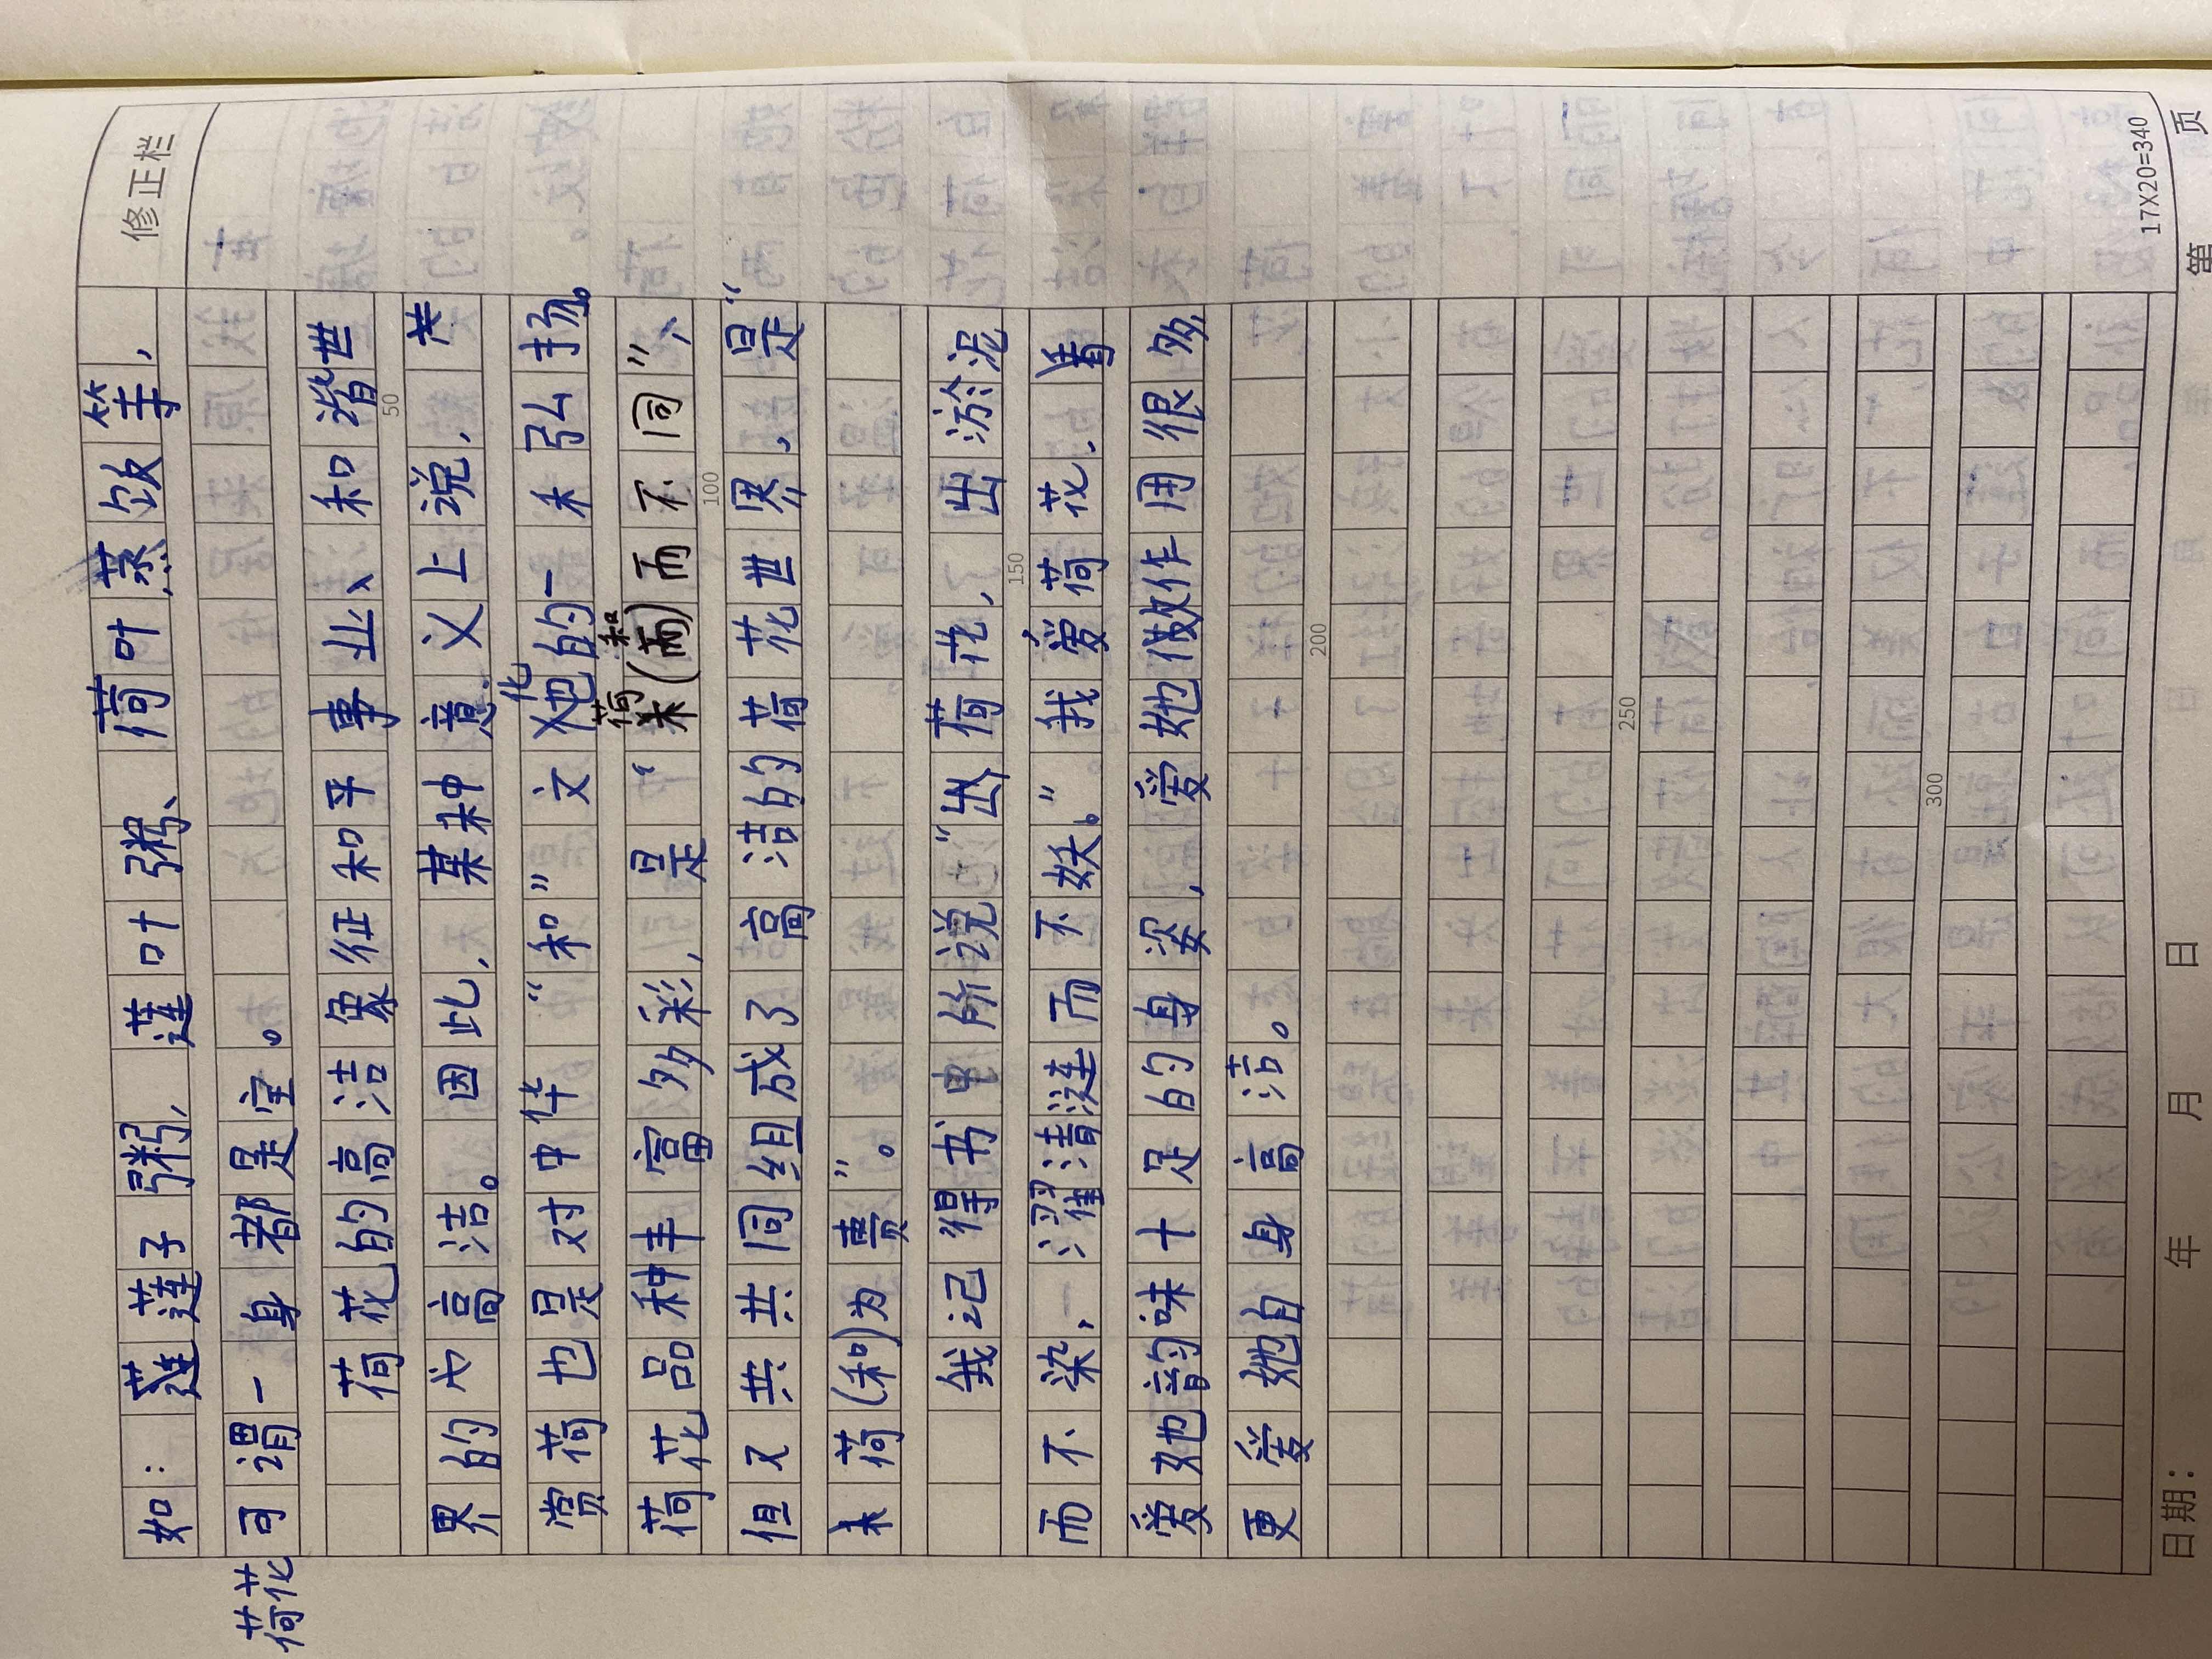 如：莲子粥，莲叶粥、荷叶蒸饭等，
荷花可谓一身都是宝。
荷花的高洁象征和平事业、和谐世
界的高洁。因此，某种意义上说，
赏荷也是对中华“和”文化的一禾弘扬。
荷花品种丰富多彩，是“荷和(而)而不同”、
但又共共同组成了高洁的荷花世界，是“
荷(和)为贵”。
我记得书中所说“荷花，出淤泥
而不染，濯清涟而不妖。”我爱荷花，
爱她韵味十足的身姿，爱她做作用很多，
更爱她自身高洁。
修正栏
50
100
150
200
250
300
17X20=340
日期： 年 月 日 第 页